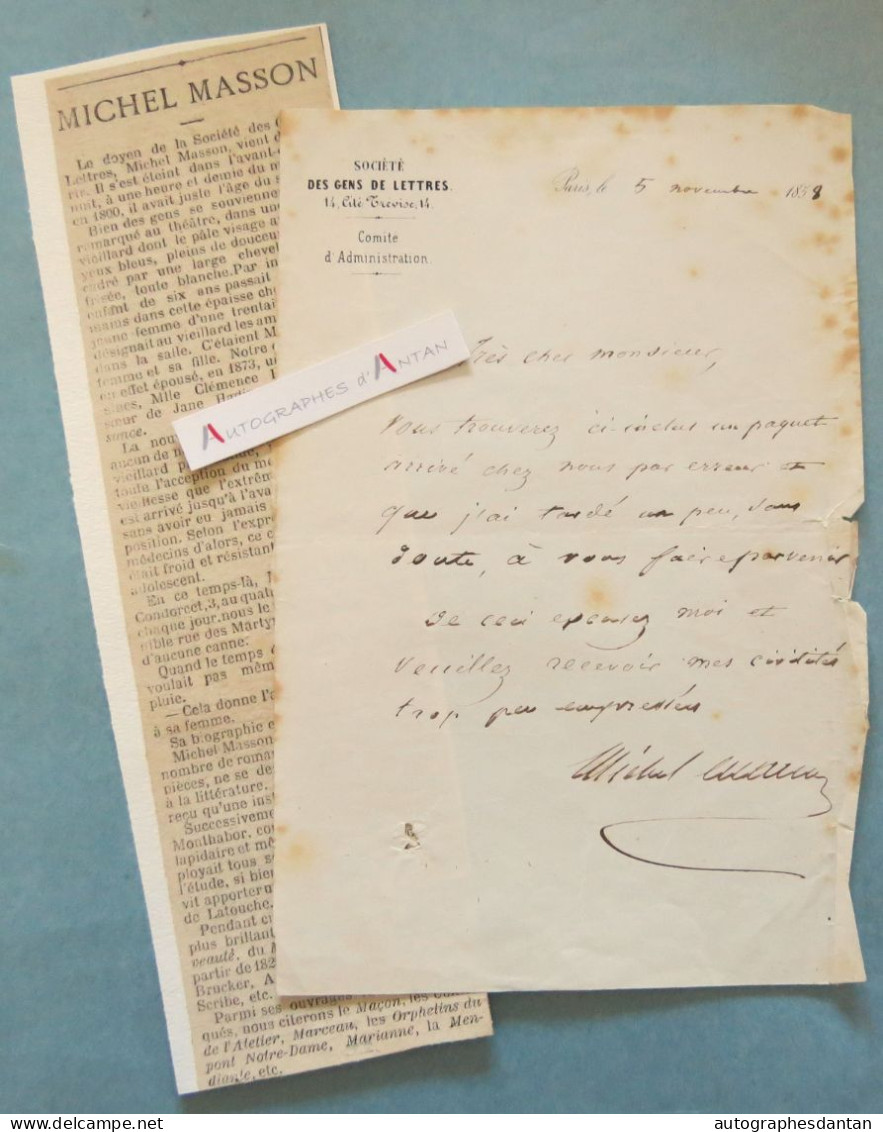 MICHEL MASSON
Le doyen de la Société des
Lettres, Michel Masson, vient
ris. Il s'est éteint dans l'avant
nuit, à une heure et demie du
en 1800, il avait juste l'âge du
Bien des gens se souvienne
remarqué au théâtre, dans une
vieillard dont le pâle visage
yeux bleus, pleins de douceur
cadré par une large chevel
frisée, toute blanche. Par in
enfant de six ans passait
mains dans cette épaisse che
jeune femme d'une trentai
désignait au vieillard les am
dans la salle. C'étaient M
femme et sa fille. Notre
en effet épousé, en 1873, u
Mlle Clémence
sœur de Jane
sance.
La nou
aucun de
vieillard
toute l'acception du m
vieillesse que l'extrêm
est arrivé jusqu'à l'ava
sans avoir eu jamais
position. Selon l'expr
médecins d'alors, ce c
était froid et résistant
adolescent.
En ce temps-là,
Condorcet, 3, au quat
chaque jour, nous le
nible rue des Martyr
d'aucune canne.
Quand le temps
voulait pas mêm
pluie.
— Cela donne l'
à sa femme.
Sa biographie e
Michel Masson
nombre de roma
pièces, ne se de
à la littérature.
reçu qu'une inst
Successivement
Monthabor, co
lapidaire et mê
ployait tous s
l'étude, si bien
vit apporter u
de Latouche.
Pendant
plus brillant
veauté, du
partir de 182
Brucker, A
Scribe, etc.
Parmi ses ouvrages
qués, nous citerons le Maçon, les
de l'Atelier, Marceau, les Orphelins du
pont Notre-Dame, Marianne, la Men-
diante, etc.
AUTOGRAPHES d'ANTAN
SOCIÉTÉ
DES GENS DE LETTRES.
14, Cité Trevise, 14.
Comite
d'Administration.
Paris, le 5 novembre 1858
Très cher monsieur,
Vous trouverez ci-inclus un paquet
arrivé chez nous par erreur et
que j'ai tardé un peu, sans
doute, à vous faire parvenir
De ceci excusez moi et
veuillez recevoir mes civilités
trop peu empressées
Michel Masson
autographesdantan